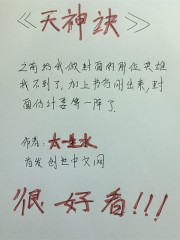 《天神诀》
之前给我做封面的那位英雄
找不到了,加上书号刚出来,封
面估计要等一阵了.
作者:大是水
首发创世中文网
很好看!!!